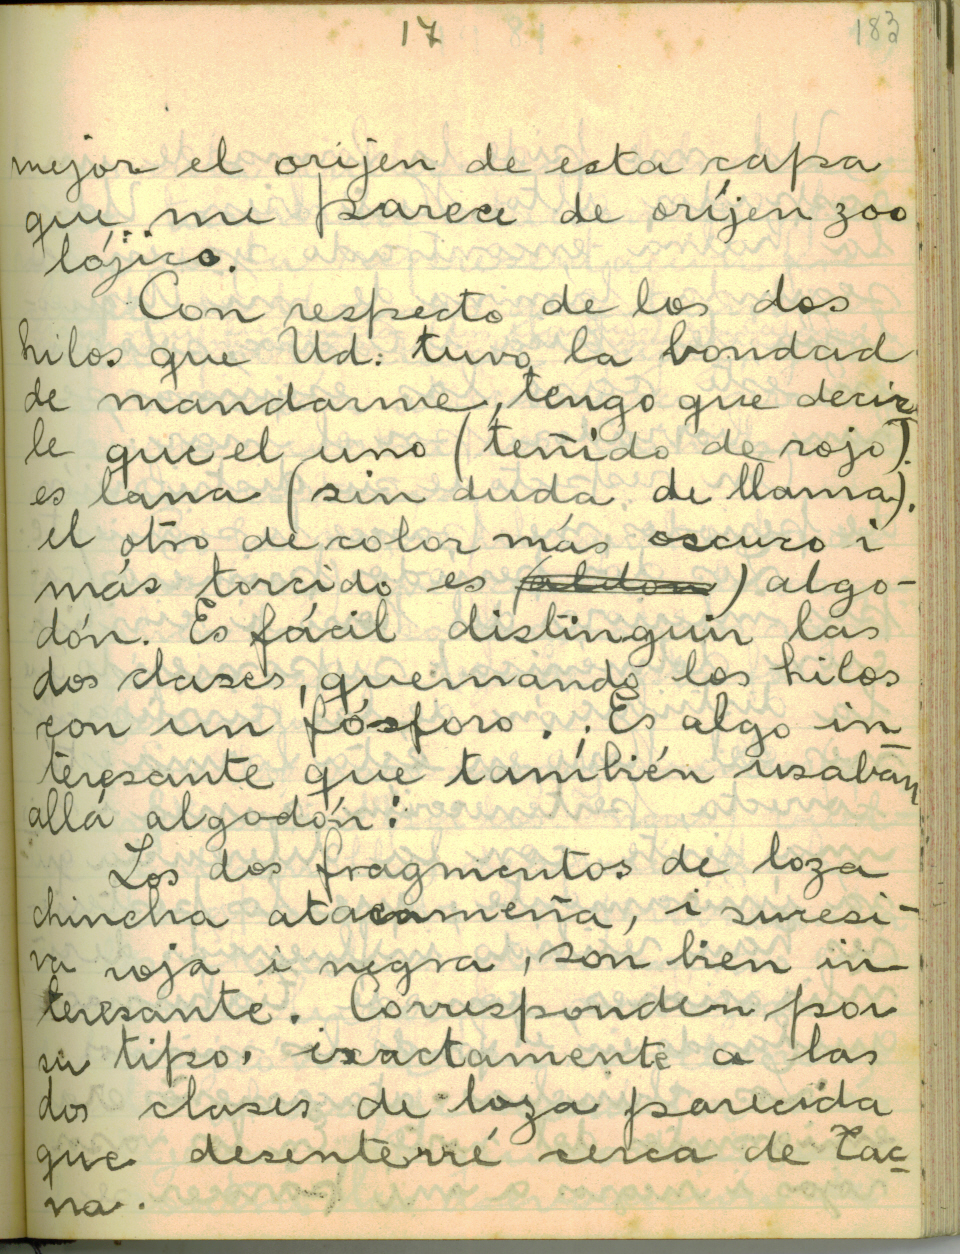 17 183
mejor el oríjen de esta capa
que me parece de oríjen zoo
lójico.
Con respecto de los dos
hilos que Ud. tuvo la bondad
de mandarme, tengo que decir
le que el uno (teñido de rojo)
es lana (sin duda de llama).
el otro de color más oscuro i
más torcido es (aldon) algo-
dón. Es fácil distinguir las
dos clases, quemando los hilos
con un fósforo. ¡Es algo in
teresante que también usaban
allá algodón!
Los dos fragmentos de loza
chincha atacameña, i sucesi-
va roja i negra, son bien in-
teresante. Corresponden por
su tipo, exactamente a las
dos clases de loza parecida
que desenterré cerca de Tac-
na.